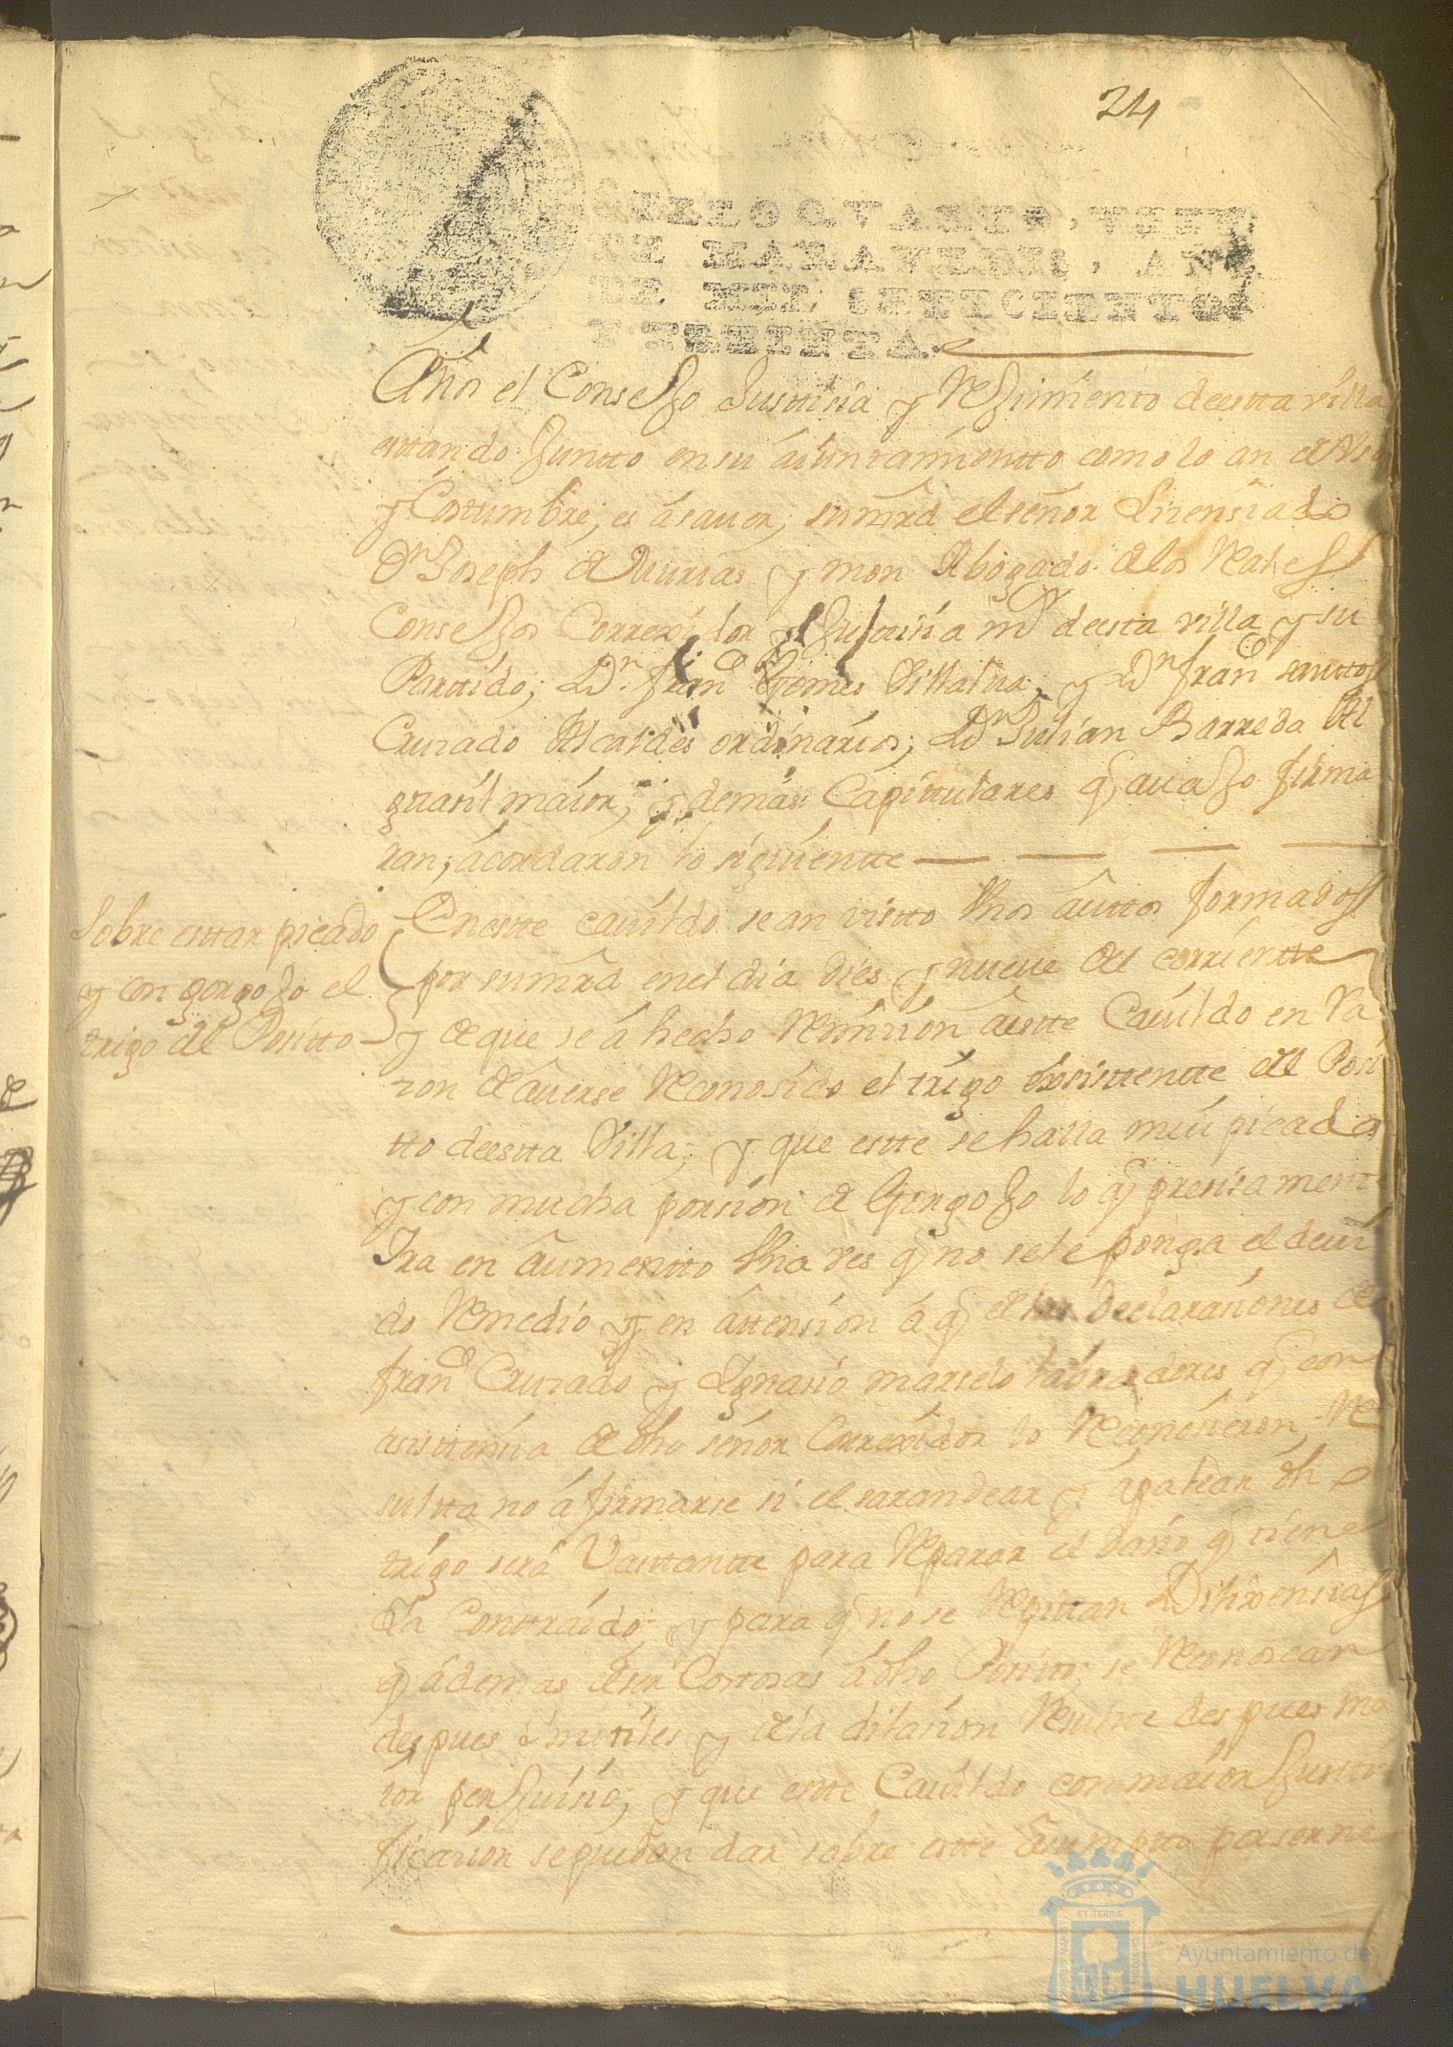 24
SELLO QVARTO, VEINT
DE MARAVEDIS, AÑO
DE MIL SETECIENTOS
Y TREINTA.
Años el Consejo Justisia y Rejimiento deestta villa
esttando Juntto ensu aiuntamientto como lo an de Vso
y Costumbre, es asauer, sumrd el señor Lisensiado
Dn Joseph de Murias y mon Abogado de los Reales
Consejos Correxidor y Justisia mr deesta villa y su
Parttido; Dn. franco Gomes Villalua, y Dn franco santtos
Cruzado Alcaldes ordinarios; Dn Julian Barreda Al
guasil maior, y demas Capittulares q auajo firma
ran; acordaron lo siguientte
Sobre esttar picado
y con gorgojo el
trigo del Positto
Enestte cauildo sean vistto Unos auttos formados
por sumrd enel dia dies y nueue del corrientte
y de que se a hecho Remision aestte Cauildo en Ra
zon de auerse Reconosido el trigo existtentte del Posi
tto deestta Villa, y que estte se halla mui picado
y con mucha porsion de Gorgojo lo q presisament
Ira en aumentto Una ves q no sele ponga el deui
do Remedio y en attension a q de las Declarasiones de
franco Cruzado y Ignasio marselo labradores q con
asisttensia de dho señor Correxidor lo Reconosieron, Re
sultta no afirmarse si el sarandear y apalear dho
trigo sera Vasttantte para Reparar el daño q tiene
Ya Conttraido, y para q no se Repittan Dilixensias
q ademas deser Costosas a dho Positto, se Reconoscan
despues inutiles y dela dilasion Resultte despues ma
ior perjuisio; y que estte Cauildo con maior Justti
ficasion sepuedan dar sobre estte asumptto
Ayuntamiento de
HUELVA